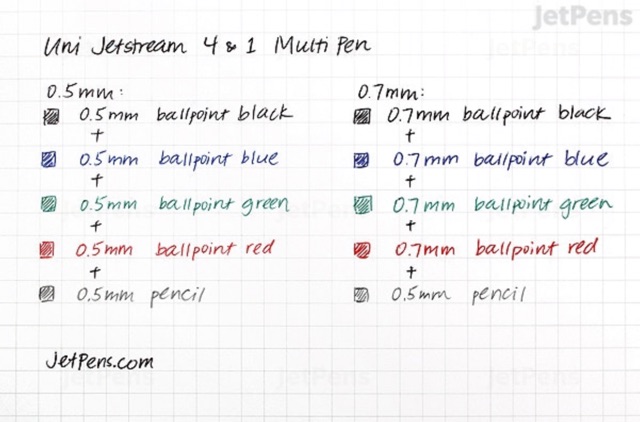 JetPens
Uni Jetstream 4 & 1 Multi Pen
0.5mm:
0.5mm ballpoint black
+
0.5mm ballpoint blue
+
0.5mm ballpoint green
+
0.5mm ballpoint red
+
0.5mm pencil
0.7mm:
0.7mm ballpoint black
+
0.7mm ballpoint blue
+
0.7mm ballpoint green
+
0.7mm ballpoint red
+
0.5mm pencil
JetPens.com
JetPens
JetPens
JetPens